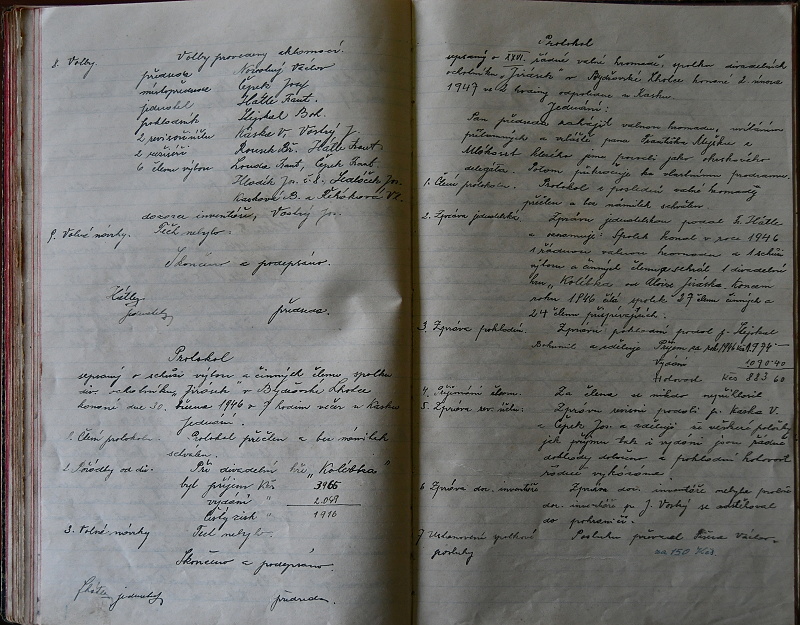 8. Volby. Volby provedeny aklamací.
předseda Novotný Václav
místopředseda Čepek Josef
jednatel Hátle Frant.
pokladník Hejskal Boh.
2 revisoři účtů Kaska V. Vostrý J.
2 Rousek Hátle Frant
6 členů výboru Frant, Čepek
Hladík Jos. č. 8. Sedláček Jos.
Kasková B. a Řeháková Vl.
dozorce inventáře, Vostrý Jos.
9. Volné návrhy. Těch nebylo.
Skončeno a podepsáno.
Hátle
jednatel předseda.
Protokol
sepsaný o schůzi výboru a činných členů spolku
div. ochotníků „Jirásek" v Bydžovské Lhotce
konané dne 30. března 1946 v 7 hodin večer u Kasků
Jednání.
1. Čtení protokolu. Protokol přečten a bez námitek
schválen.
2. od div. Při divadelní hře „Kolébka"
byl příjem Kčs 3965
vydání " 2.049
čistý zisk " 1916
3. Volné návrhy Těch nebylo.
Skončeno a podepsáno.
Hátle jednatel předseda.
Protokol
sepsaný o XXVI. řádné valné hromadě, spolku divadelních
ochotníků „Jirásek" v Bydžovské Lhotce konané 2. února
1947 ve 2 hodiny odpoledne u Kasků.
Jednání:
Pan předseda zahájil valnou hromadu, uvítáním
přítomných a zvláště pana Františka
Mlékosrb kterého jsme pozvali jako okrskového
delegáta. Potom přikročuje ku vlastnímu programu.
1. Čtení protokolu. Protokol z poslední valné hromady
přečten a bez námitek schválen.
2. Zpráva jednatelská. Zprávu jednatelskou podal Fr. Hátle
a oznamuje: Spolek konal v roce 1946
1 řádnou valnou hromadu a 1 schůzi
výboru a činných členů a sehrál 1 divadelní
hru „Kolébka" od Aloise Jiráska. Koncem
roku 1946 čítá spolek 27 členů činných a
24 členů přispívajících.
3. Zpráva pokladní. Zprávu pokladní podal p. Hejskal
Bohumil a sděluje Příjem za rok 1946 Kčs 1.974 —
Vydání 1090 40
Hotovost Kčs 883 60
4. Přijímání členů. Za člena se nikdo nepřihlásil
5. Zpráva rev. účtů: Zprávu revisní podali pp. Kaska V.
a Čepek Jos. a sdělují že veškeré položky
jak příjmu tak i vydání jsou řádně
doklady doloženy a pokladní hotovost
řádně vykázána.
6. Zpráva doz. inventáře Zpráva doz. inventáře nebyla
doz. inventáře p. J. Vostrý se odstěhoval
do pohraničí.
7. Ustanovení spolkové Posluhu převzal Václav
posluhy na 150 Kčs.